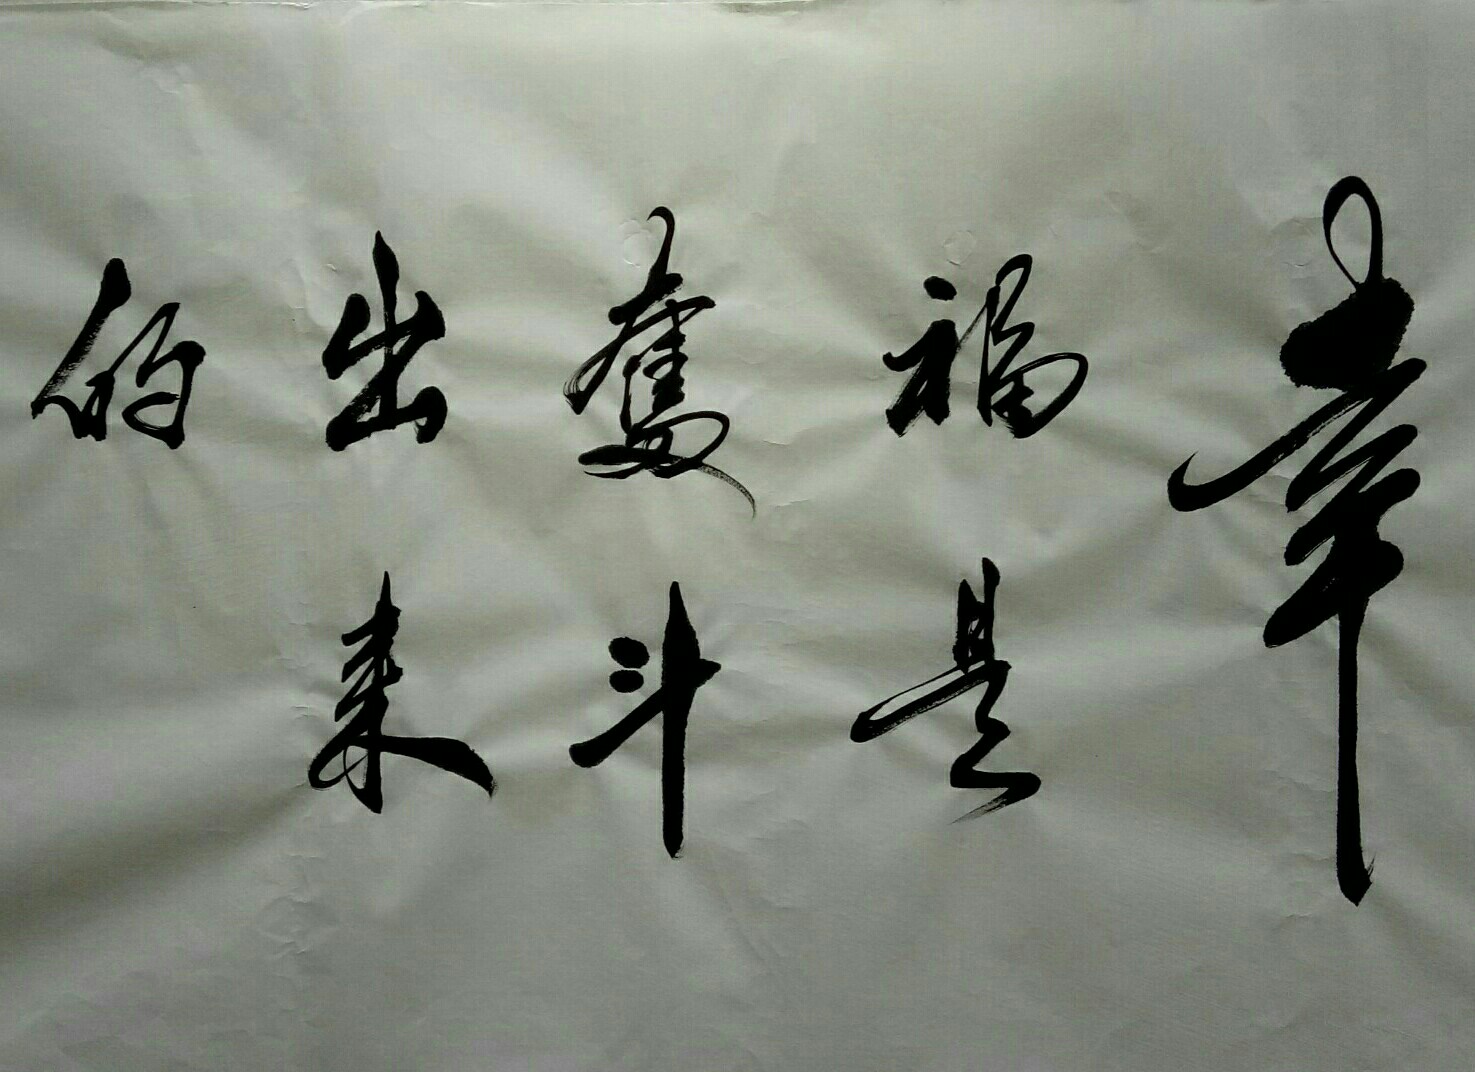 幸
福是
奮斗
出来
的